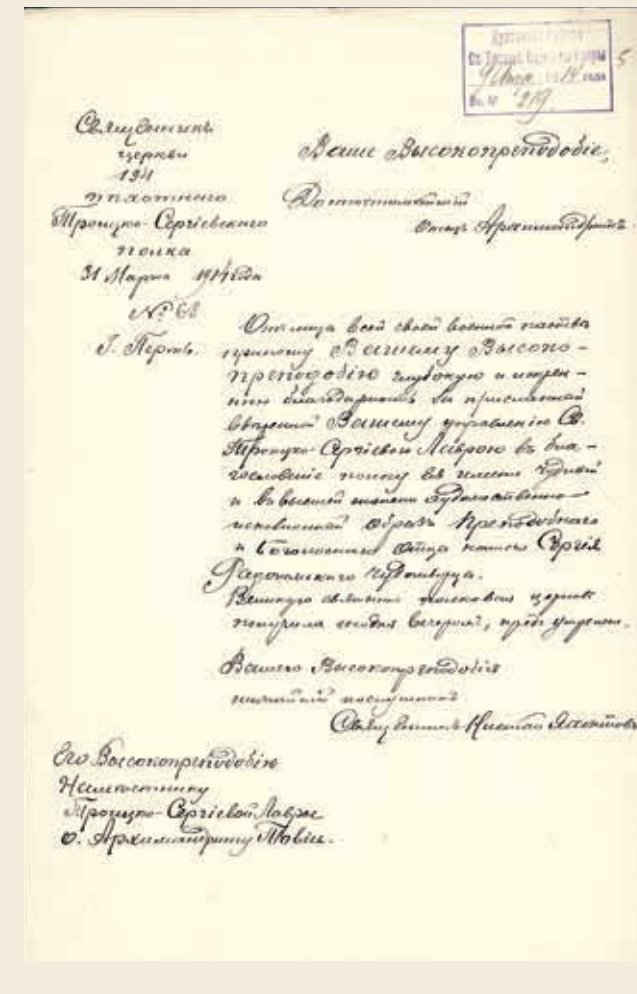 9 Апр. 1914 года
Вх. № 219
5
Священникъ
церкви
194
пѣхотнаго
Троицко-Сергіевскаго
полка
31 Марта 1914 года
№ 68
Г. Пермь.
Ваше Высокопреподобіе,
Достопочтимый
Отецъ Архимандритъ.
Отъ лица всей своей военной паствы
приношу Вашему Высоко-
преподобію глубокую и искрен-
нюю благодарность за присланный
ввѣренной Вашему управленію Св.
Троицко-Сергіевой Лаврою въ бла-
гословеніе полку ея имени чудный
и въ высшей степени художественно
исполненный образъ Преподобнаго
и Богоноснаго Отца нашего Сергія
Радонежскаго Чудотворца.
Великую святыню полковая церковь
получила сегодня вечеромъ, предъ утреней.
Вашего Высокопреподобія
послушникъ
Священникъ Николай
Его Высокопреподобію
Намѣстнику
Троицко-Сергіевой Лавры
о. Архимандриту